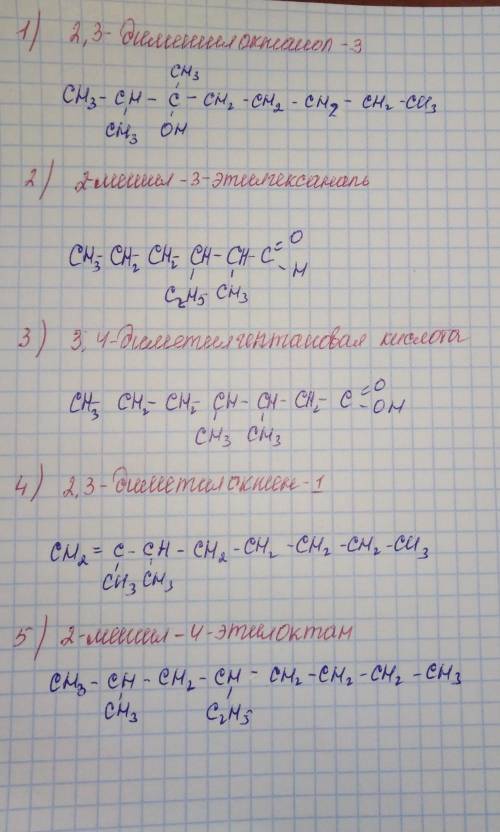 1) 2,3-диметилоктанол-3
CH3
CH3 - CH - C - CH2 - CH2 - CH2 - CH2 - CH3
CH3 OH
2) 2-метил-3-этилгексаналь
CH3- CH2- CH2- CH- CH- C = O
- H
C2H5 CH3
3) 3,4-диметилгептановая кислота
CH3- CH2- CH2- CH- CH- CH2- C = O
- OH
CH3 CH3
4) 2,3-диметилоктен-1
CH2 = C - CH - CH2 - CH2 - CH2 - CH2 - CH3
CH3 CH3
5) 2-метил-4-этилоктан
CH3 - CH - CH2 - CH - CH2 - CH2 - CH2 - CH3
CH3 C2H5